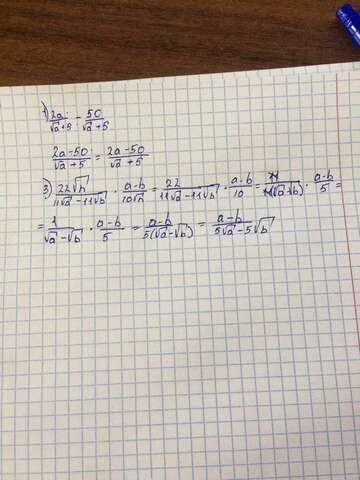 1) 2a/(√a+5) - 50/(√a+5)
(2a-50)/(√a+5) = (2a-50)/(√a+5)
3) 22√h/(11√a-11√b) · (a-b)/(10√h) = 22/(11√a-11√b) · (a-b)/10 = 11/(11(√a-√b)) · (a-b)/5 =
= 1/(√a-√b) · (a-b)/5 = (a-b)/(5(√a-√b)) = (a-b)/(5√a-5√b)